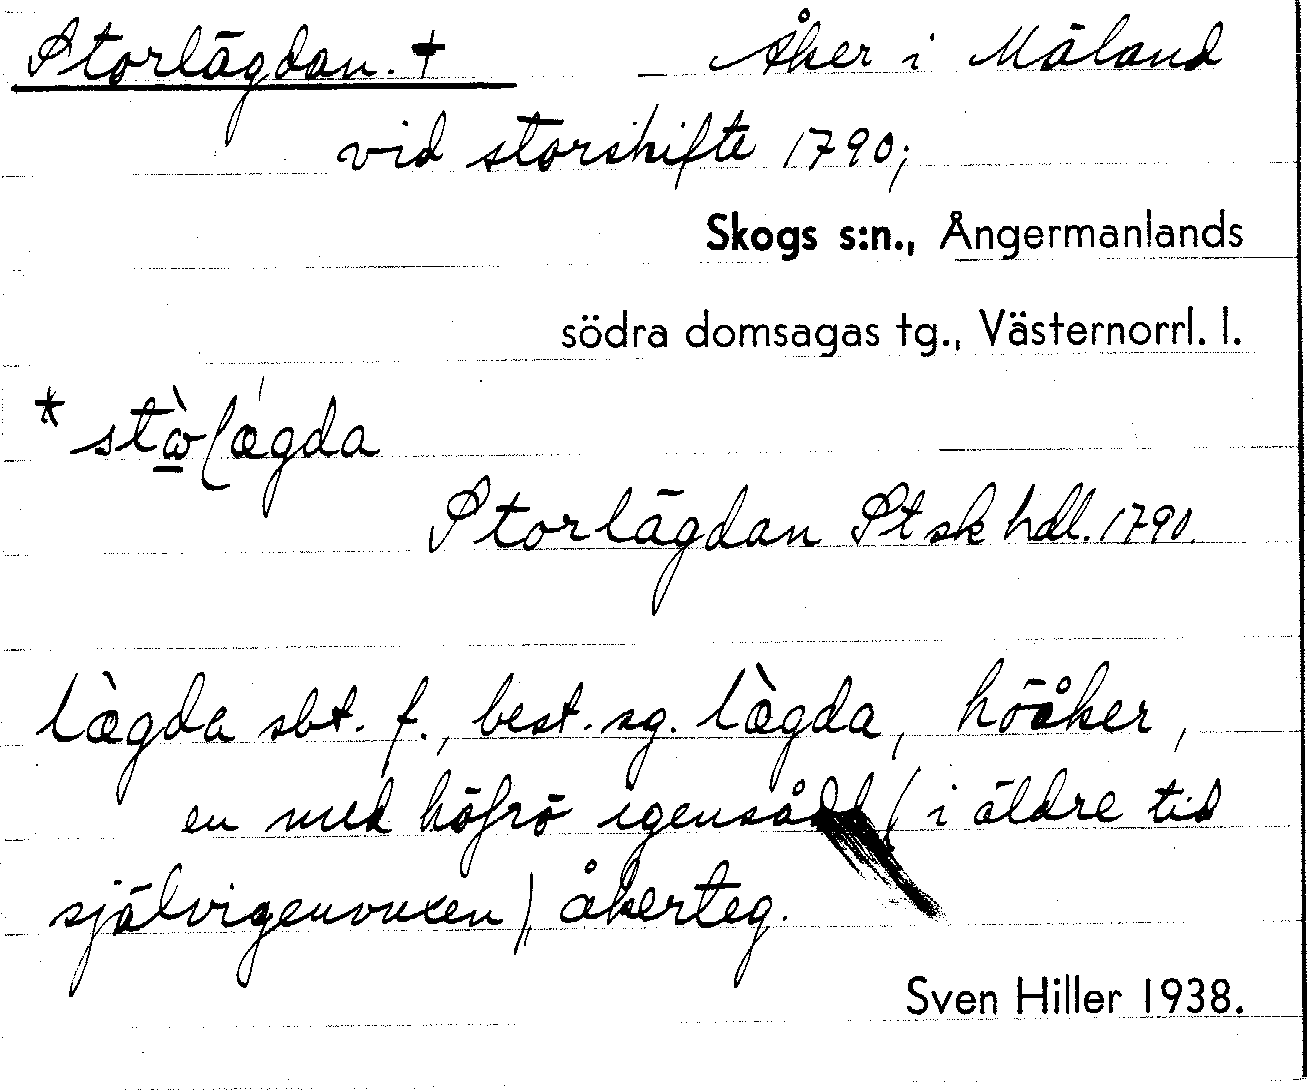 Storlägdan. † Åker i Mäland
vid storskifte 1790;
Skogs s:n., Ångermanlands
södra domsagas tg., Västernorrl. l.
Storlägdan Stskhdl. 1790.
lægda sbt. f., best. sg. lægda, höåker,
en med höfrö igensådd (i äldre tid
självigenvuxen), åkerteg.
Sven Hiller 1938.